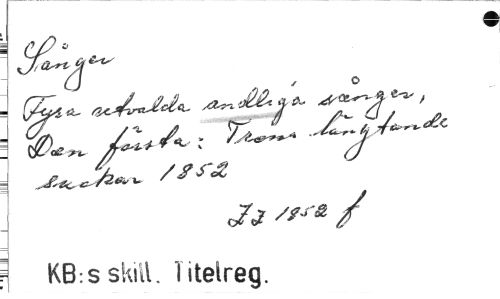 Sånger
Fyra utvalda andliga sånger,
Den första: Trons längtande
suckar 1852
JJ 1852 f
KB:s skill. Titelreg.